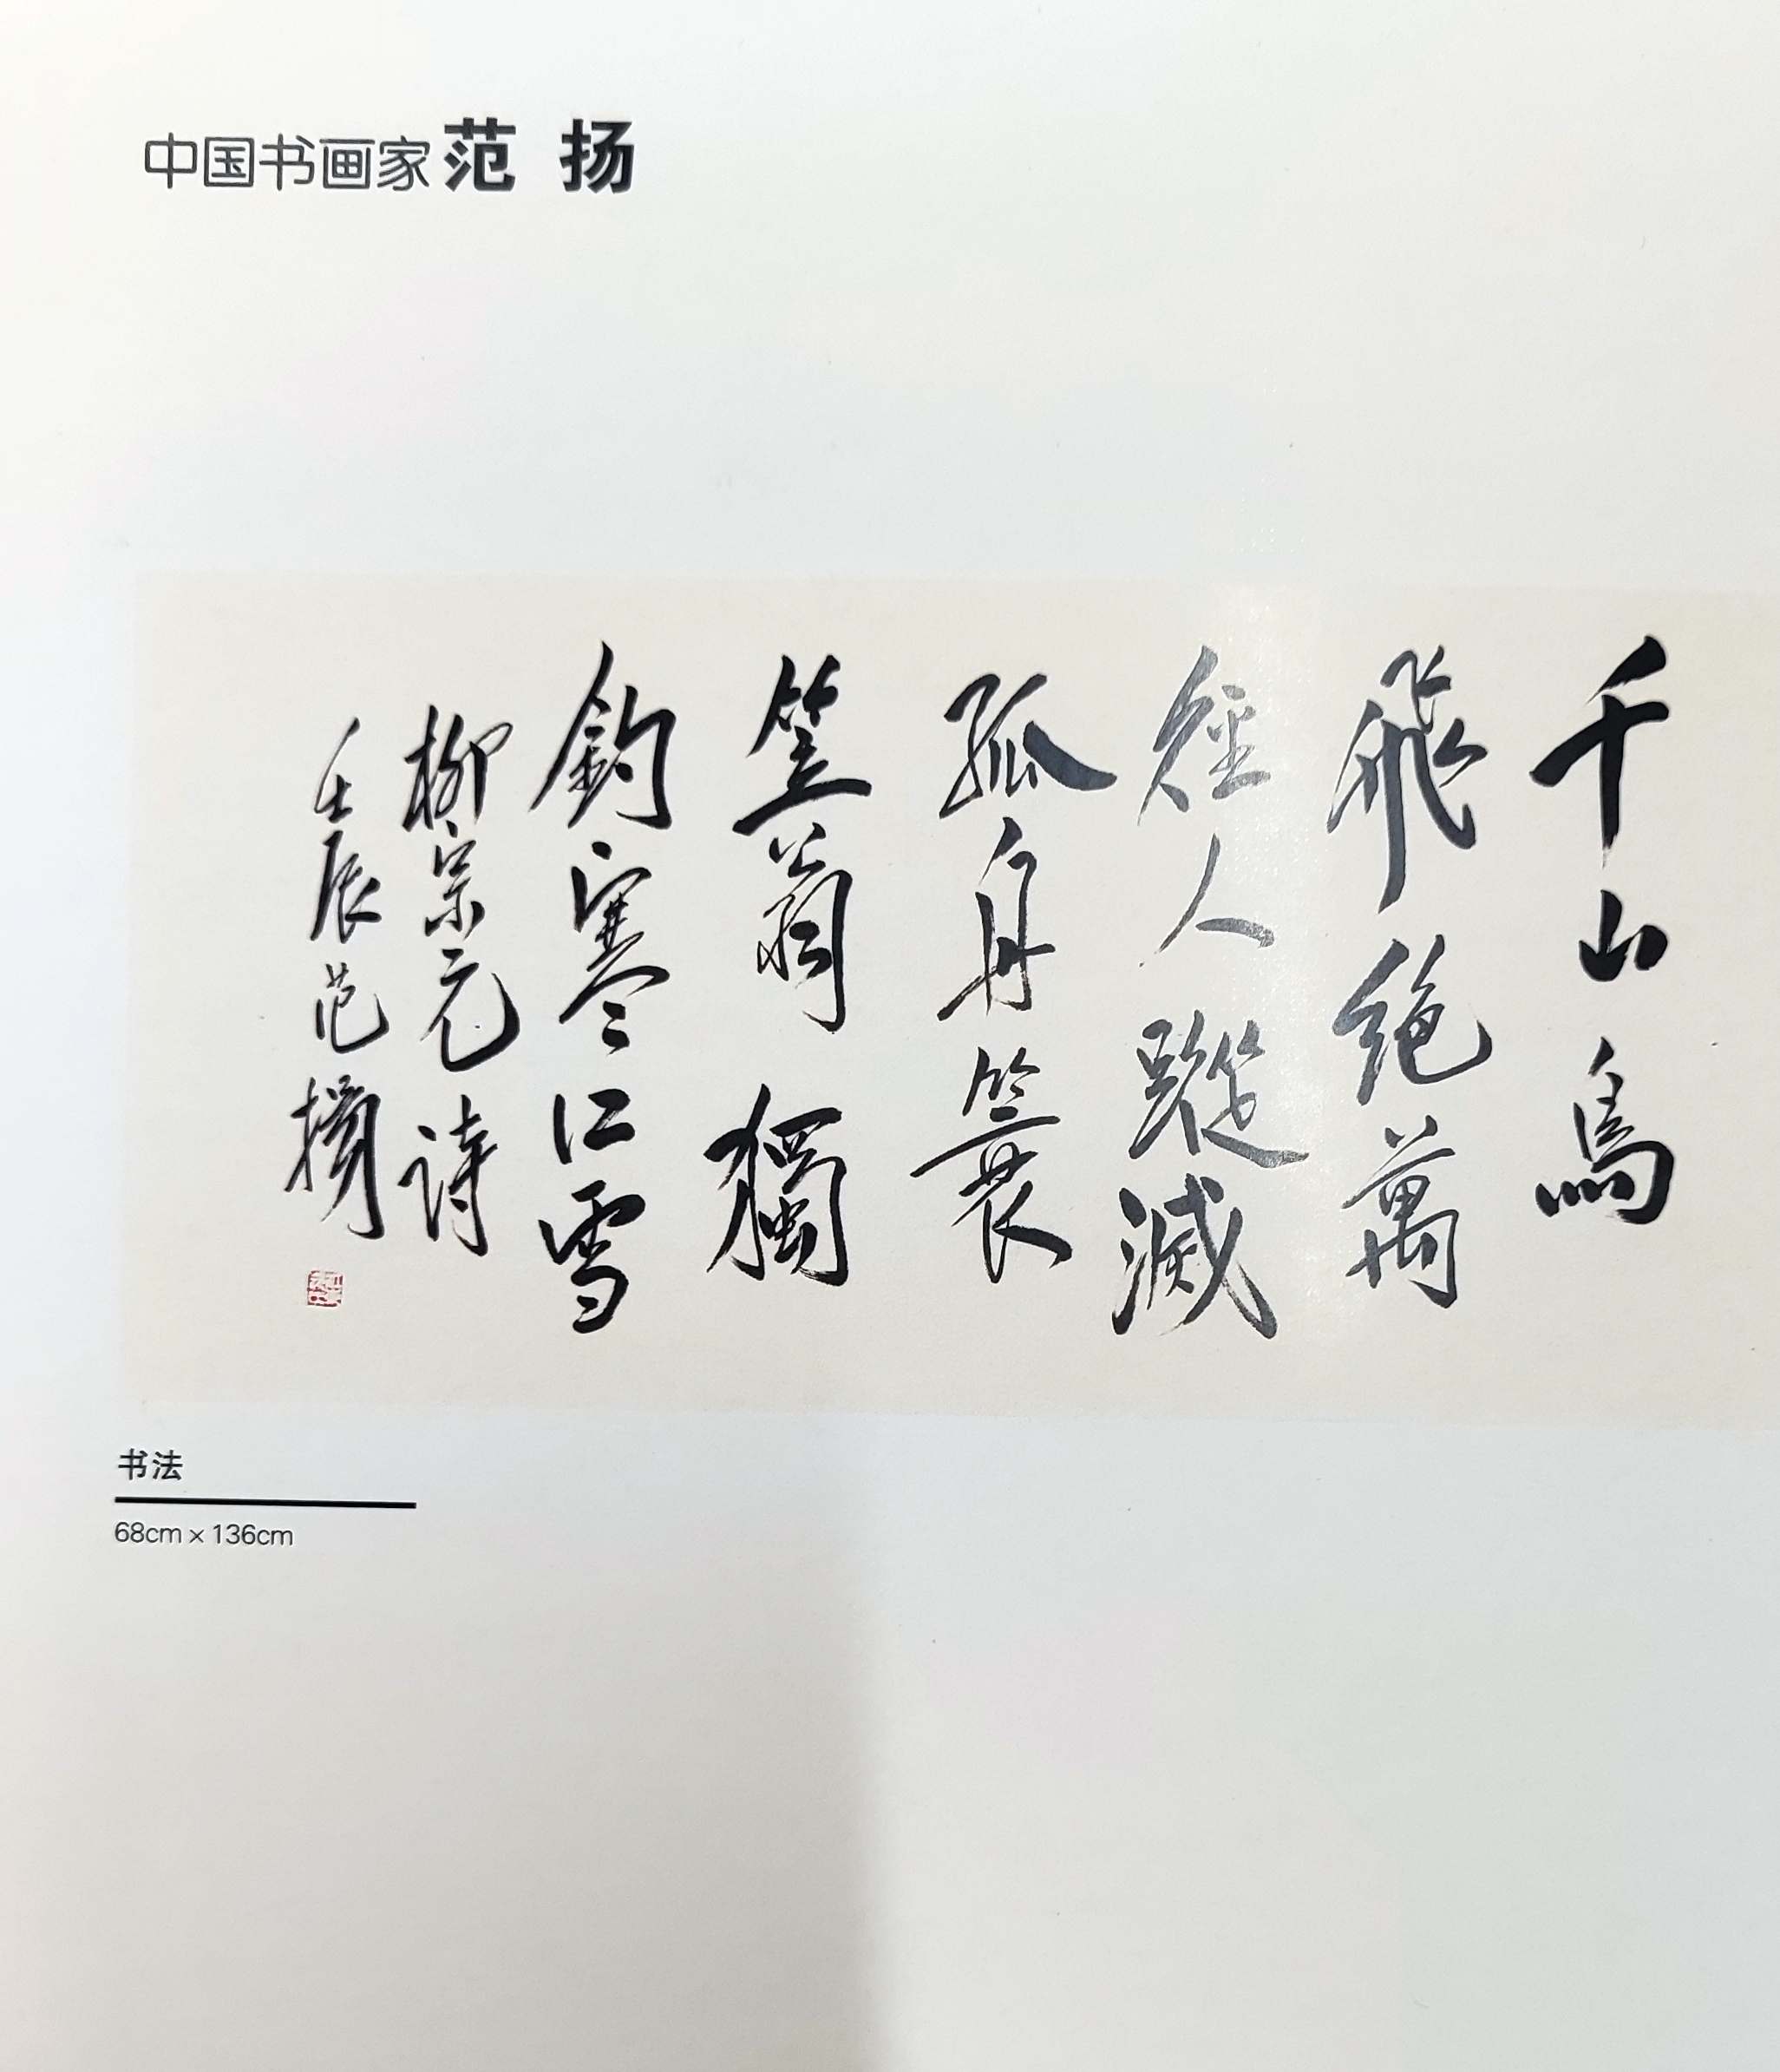 中国书画家 范扬
千山鳥
飛絶萬
徑人蹤滅
孤舟簑
笠翁獨
釣寒江雪
柳宗元詩
壬辰范揚
书法
68cm×136cm